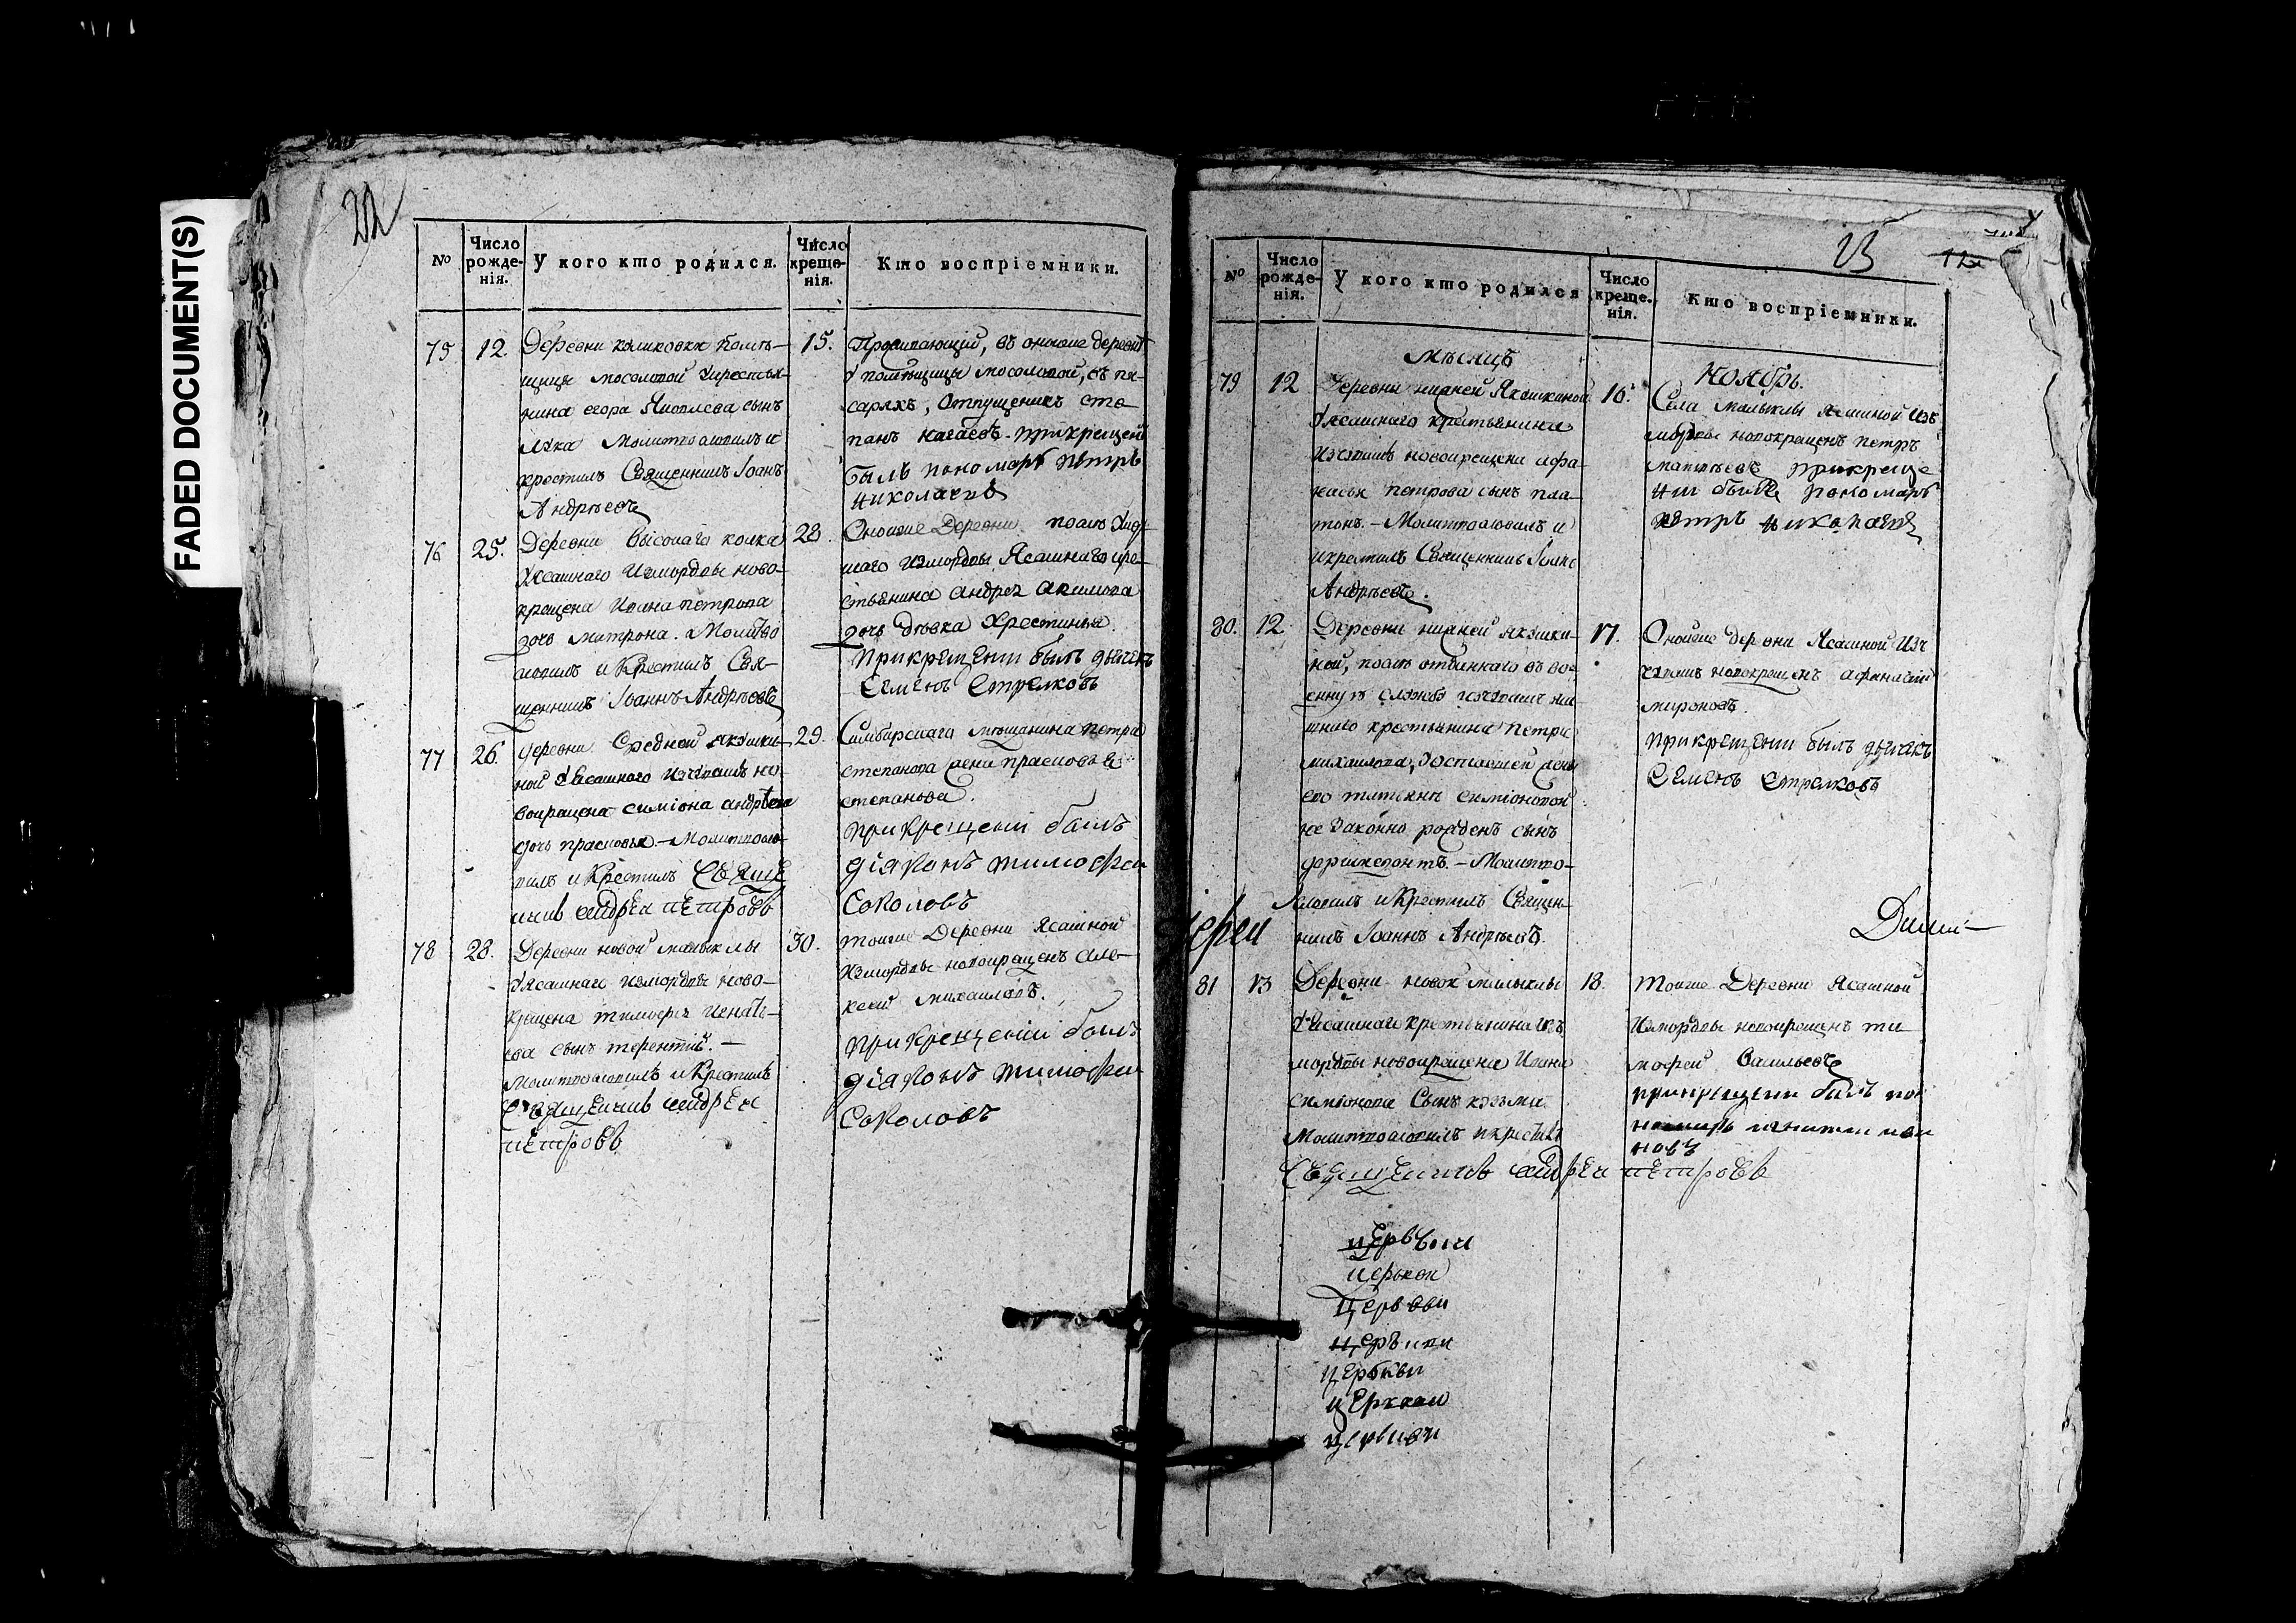 FADED DOCUMENT(S)
22
№
Число рожде-нія.
У кого кто родился.
Число креще-нія.
Кто воспріемники.
75
12.
Деревни куликовки помѣ-
щицы мосоловой Хрестья-
нина егора Яковлева сынъ
лука Молитвословилъ и
крестилъ Священникъ Іоанъ
Андрѣевъ
15.
Проживающій, въ оноиже деревнѣ
У помѣщицы мосоловой, въ пи-
саряхъ, Отпущеникъ сте-
панъ При крещени
былъ пономарь Петръ
николаевъ
76
25.
Деревни Высокаго колка
Ясашнаго Измордвы ново-
крещена Ивана петрова
дочь матрона. Молитво
словилъ и Крестилъ Свя-
щенникъ Іоаннъ Андрѣевъ
28.
Оноиже Деревни
Измордвы Ясашнаго кре-
стьянина андрея акимова
дочь дѣвка Хрестинья.
При крещени былъ дьячекъ
Семенъ Стрелковъ
77
26.
деревни Средней якушки-
ной Ясашного Изчувашъ но-
вокрещена симіона андрѣева
дочь прасковья. – Молитвосло-
вилъ и Крестилъ Свяще
никъ андреи петровъ
29.
Симбирскаго мещанина петра
степанова жена прасковья
степанова.
при крещеніи былъ
діяконъ тимофеи
Соколовъ
78
28.
Деревни новой малыклы
Ясашнаго Измордвы ново-
крещена тимофея игнать-
ева сынъ терентий. –
Молитвословилъ и Крестилъ
Священикъ андреи
петровъ
30.
тоиже Деревни Ясашной
Измордвы новокрещенъ але-
ксей михаиловъ.
при крещеніи былъ
діяконъ тимофеи
Соколовъ
23
№
Число рожде-нія.
У кого кто родился
Число креще-нія.
Кто воспріемники.
мѣсяцъ
Ноябрь.
79
12
Деревни нижней Якушкиной
Ясашнаго крестьянина
Изчувашъ новокрещена афа-
насья петрова сынъ пла-
тонъ. – Молитвословилъ и
крестилъ Священникъ Іоаннъ
Андрѣевъ.
16.
Села малыклы ясашной Изъ
мордвы новокрещенъ петръ
матвѣевъ При креще
нии былъ пономарь
Петръ николаевъ
80.
12
Деревни нижней якушки-
ной, отданнаго въ во-
енную службу изчувашъ яса-
шнаго крестьянина петра
михаилова, Уоставшей жены
его татьяны симіоновой
не Законно рожденъ сынъ
ферапонтъ. – Молитво-
словилъ и Крестилъ Священ-
никъ Іоаннъ Андрѣевъ.
17.
Оноиже деревни Ясашной Из
чувашъ новокрещенъ афанасий
мироновъ.
При крещени былъ дьячекъ
Семенъ Стрелковъ
іереи
81
13
Деревни новой малыклы
Ясашнаго крестьянина изъ
мордвы новокрещена Ивана
симіонова Сынъ козма.
Молитвословилъ икрестилъ
Священикъ андреи петровъ
18.
тоиже Деревни Ясашной
Измордвы новокрещенъ ти
мофеи Васильевъ
при крещени былъ по
номарь игнатеи ива
новъ
церквы
церкви
церкви
церкви
церкви
церкви
церкви